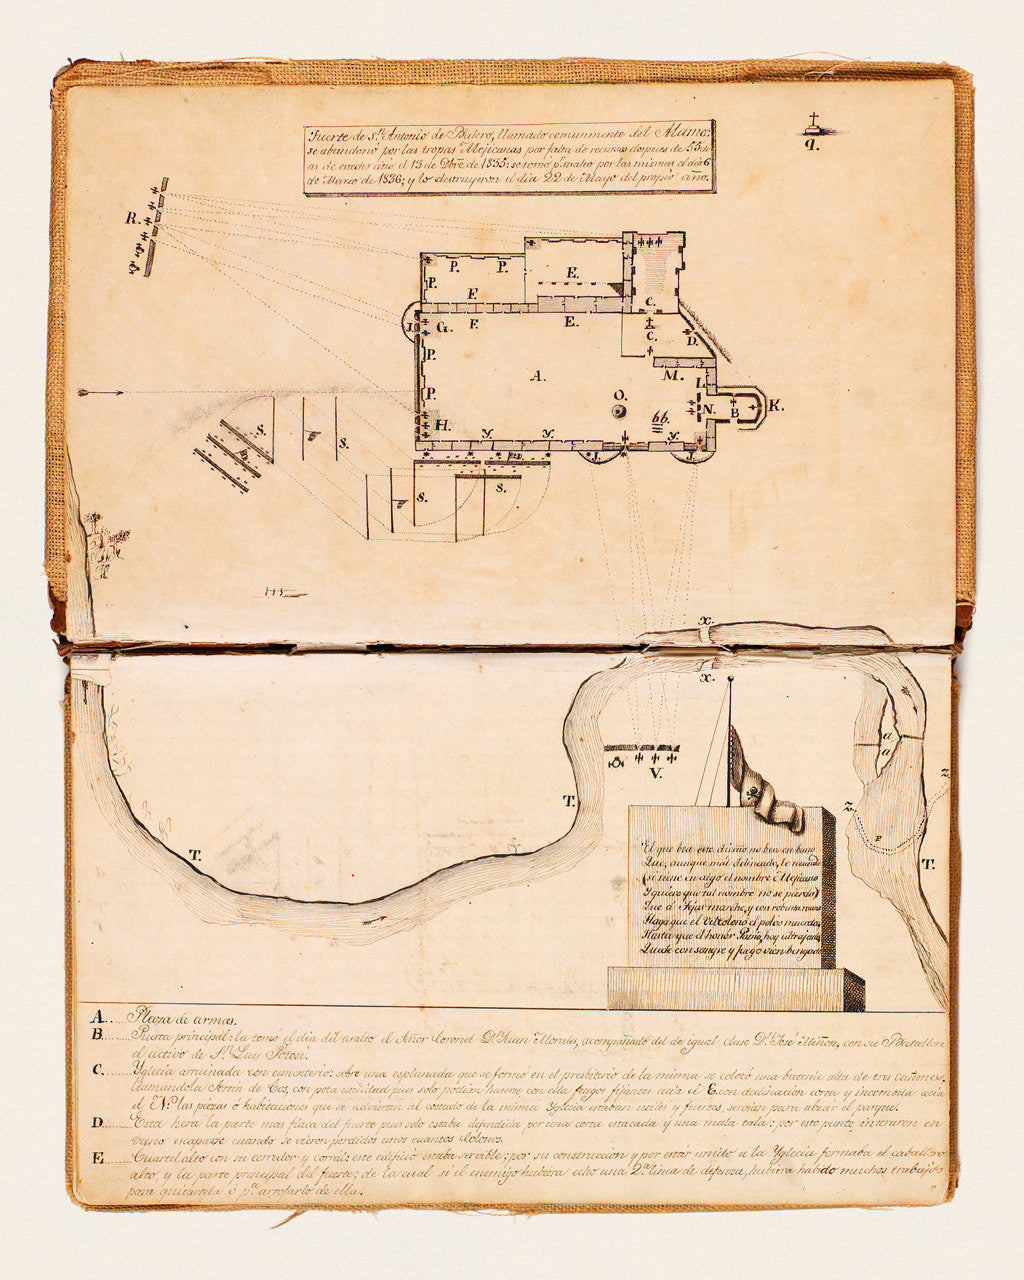 Fuerte de S.n Antonio de Bejero, llamado comunmente del Alamo:
se abandonó por las tropas Mejicanas por falta de recursos despues de 55 di-
as de sitio el 15 de Dbre. de 1835: se tomó pr. asalto por las mismas el dia 6
de Marzo de 1836; y lo destruyeron el dia 22 de Mayo del propio año.
q.
R.
P. P. E.
P.
F.
C.
J. G. F. E.
C. D.
P.
A. M.
L.
P. O. K.
N. B
H. bb.
y. y. y.
S. J. J.
S.
S. S.
x.
x.
a
a
V. z
T. z.
T. T.
El que bea este diseño no bea en bano
Que, aunque mal delineado, le recuerda
(si tiene en algo el nombre Mejicano
Y quiere que tal nombre no se pierda)
Que á Tejas marche, y con robusta mano
Haga que el vil colono el polvo muerda,
Hasta que el honor Patrio, hoy ultrajado,
Quede con sangre y fuego bien bengado
A... Plaza de armas.
B... Puerta principal: la tomó el dia del asalto el Señor Coronel D.n Juan Morales, acompañado del de igual clase D.n José Miñon, con su Batallon
el activo de S.n Luis Potosi.
C... Yglecia arruinada con cementerio: sobre una esplanada que se formó en el presbiterio de la misma se colocó una bateria alta de tres cañones,
llamandola Fortin de Coz, con poca utilidad pues solo podian hacerse con ella fuegos fijantes acia el E. con declinacion corta y incomoda acia
el N. las piezas ó habitaciones que se advierten al costado de la misma Yglecia estaban utiles y fuertes, servian para alzar el parque.
D... Esta hera la parte mas flaca del fuerte pues solo estaba defendida por una corta estacada y una mala tala: por este punto intentaron en
vano escaparse cuando se vieron perdidos unos cuantos Colonos.
E... Cuartel alto con su corredor y corral: este edificio estaba servible; por su construccion y por estar unido a la Yglecia formaba el caballero
alto, y la parte principal del fuerte; de la cual si el enemigo hubiera echo una 2.a linea de defenza, hubiera habido muchos trabajos
para quitarsela ó p.a arrojarlo de ella.